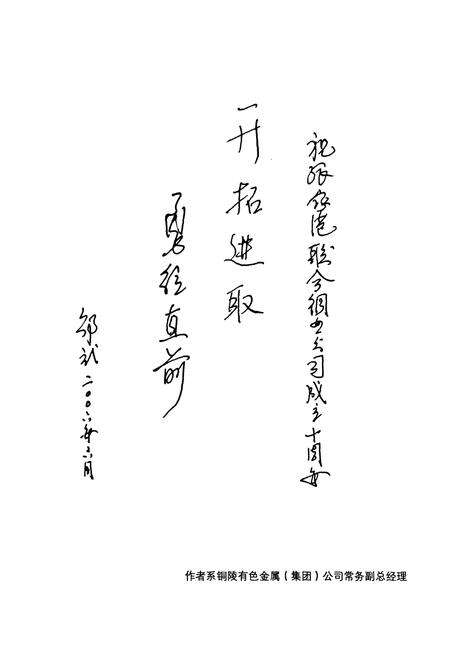 祝张家港联合铜业公司成立十周年
开拓进取
勇往直前
邵武 二〇〇六年六月
作者系铜陵有色金属(集团)公司常务副总经理